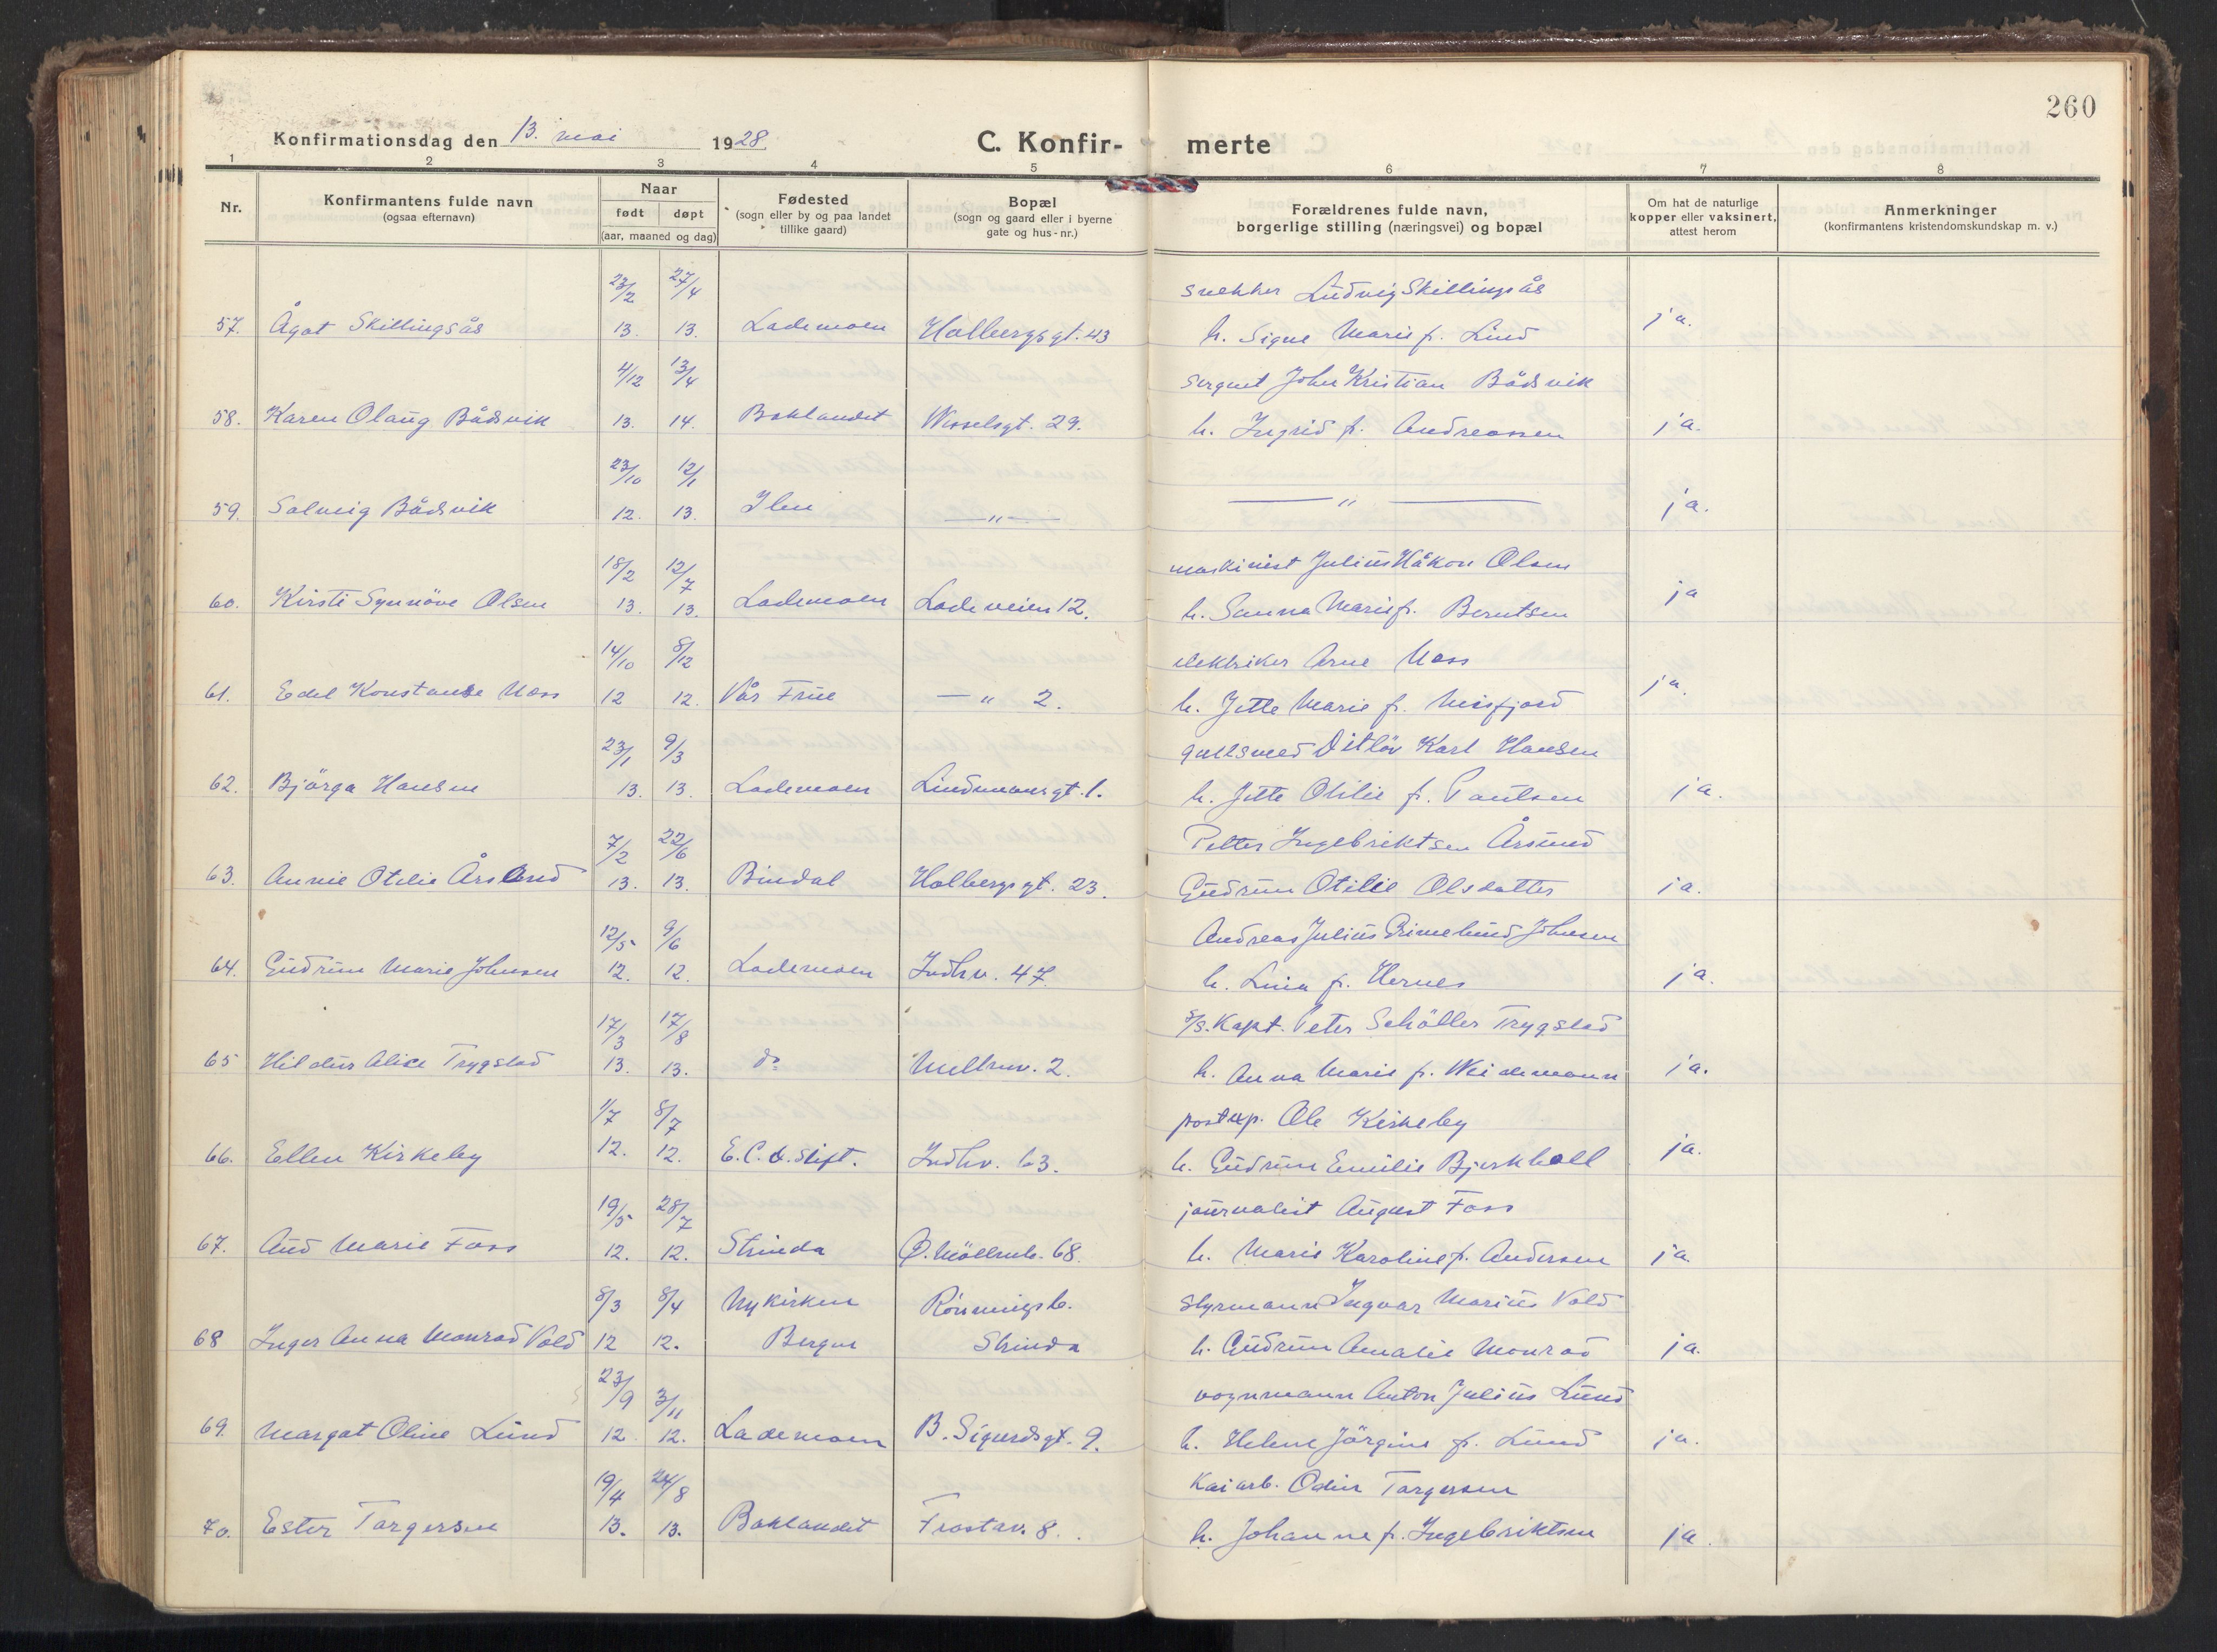 260
Konfirmationsdag den 13. mai 1928. C. Konfirmerte
1 2 3 4 5 6 7 8
Nr.
Konfirmantens fulde navn
(ogsaa efternavn)
Naar
født døpt
(aar, maaned og dag)
Fødested
(sogn eller by og paa landet
tillike gaard)
Bopæl
(sogn og gaard eller i byerne
gate og hus-nr.)
Forældrenes fulde navn,
borgerlige stilling (næringsvei) og bopæl
Om hat de naturlige
kopper eller vaksinert,
attest herom
Anmerkninger
(konfirmantens kristendomskundskap m. v.)
23/2 27/4 snekker Ludvig Skillingsås
57. Ågot Skillingsås 13. 13. Lademoen Holbergsgt. 43 h. Signe Marie f. Lind ja.
4/12 13/4 sergent John Kristian Bådsvik
58. Karen Olaug Bådsvik 13. 14. Baklandet Wesselsgt. 29. h. Ingrid f. Andreassen ja.
23/10 12/1
59. Solveig Bådsvik 12. 13. Ilen — " — — " — ja.
18/2 12/7 maskinist Julius Håkon Olsen
60. Kirsti Synnöve Olsen 13. 13. Lademoen Ladeveien 12. h. Sanna Marie f. Berntsen ja
14/10 8/12 elektriker Arne Moss
61. Edel Konstanse Moss 12 12. Vår Frue — " 2. h. Jette Marie f. Misfjord ja.
23/1 9/3 gullsmed Ditlöv Karl Hansen
62. Björga Hansen 13. 13. Lademoen Lindemansgt. 1. h. Jette Otilie f. Paulsen ja.
7/2 22/6 Petter Ingebriktsen Årsund
63. Annie Otilie Årsund 13. 13. Bindal Holbergsgt. 23. Gudrun Otilie Olsdatter ja.
12/5 9/6 Andreas Julius Grimelund Johnsen
64. Gudrun Marie Johnsen 12. 12. Lademoen Indhv. 47. h. Lina f. Hernes ja.
17/3 17/8 s/s. Kapt. Peter Schöller Trygstad
65 Hildur Alice Trygstad 13. 13. do Mellemv. 2. h. Anna Marie f. Weidemann ja.
1/7 8/7 postexp. Ole Kirkeby
66. Ellen Kirkeby 12. 12. E. C. D. stift. Indhv. 63. h. Gudrun Emilie Bjerkholl ja.
19/5 28/7 journalist August Foss
67. Aud Marie Foss 12. 12. Strinda Ø. Möllenb. 68. h. Marie Karoline f. Andersen ja.
8/3 8/4 Nykirken Rönningsb. styrmann Ingvar Marius Vold
68 Inger Anna Monrad Vold 12 12. Bergen Strinda h. Gudrun Amalie Monrad ja.
23/9 3/11 vognmann Anton Julius Lund
69. Margot Oline Lund 12. 12. Lademoen B. Sigurdsgt. 9. h. Helene Jörgine f. Lund ja.
19/4 24/8 Kaiarb. Odin Torgersen
70. Ester Torgersen 13. 13. Baklandet Frostav. 8. h. Johanne f. Ingebriktsen ja.